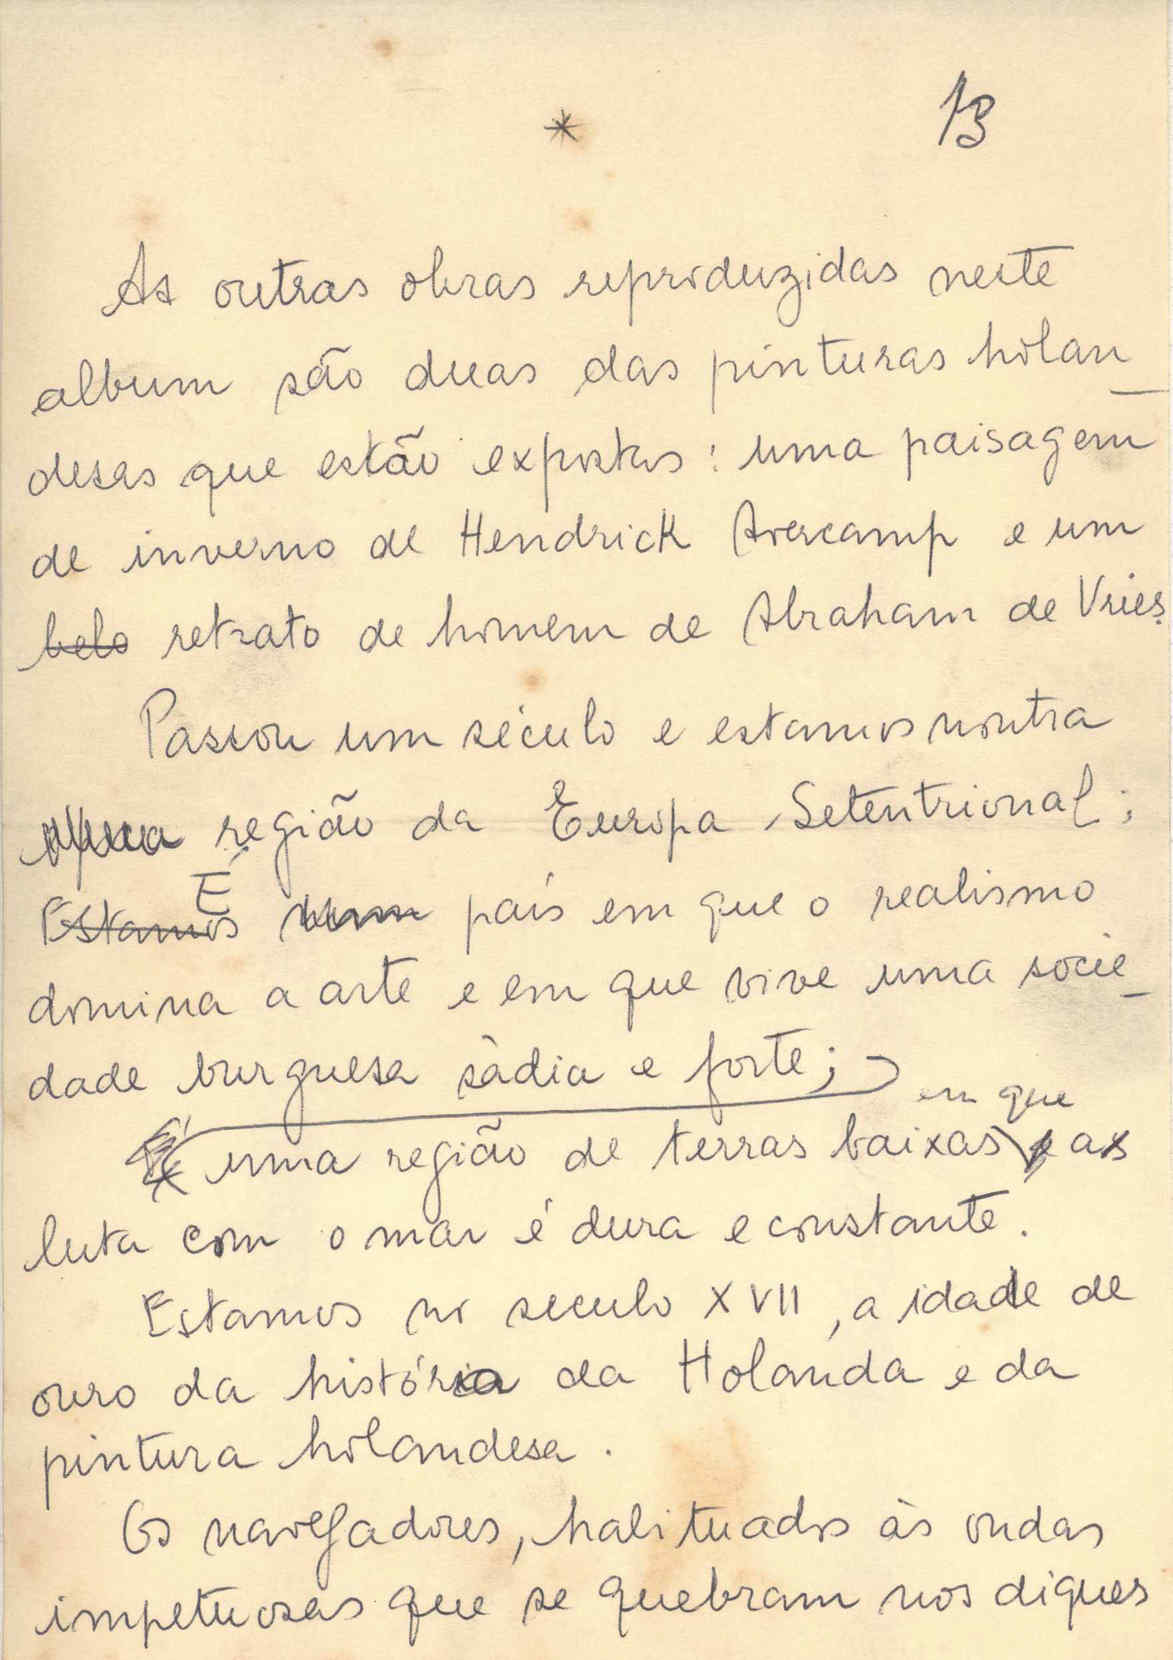 *
13
As outras obras reproduzidas neste
album são duas das pinturas holan_
desas que estão expostas: uma paisagem
de inverno de Hendrick Avercamp e um
belo retrato de homem de Abraham de Vries.
Passou um século e estamos noutra
região da Europa Setentrional;
É
Estamos num país em que o realismo
domina a arte e em que vive uma socie_
dade burguesa sàdia e forte;
em que
É uma região de terras baixas a
luta com o mar é dura e constante.
Estamos no seculo XVII, a idade de
ouro da história da Holanda e da
pintura holandesa.
Os navegadores, habituados às ondas
impetuosas que se quebram nos diques